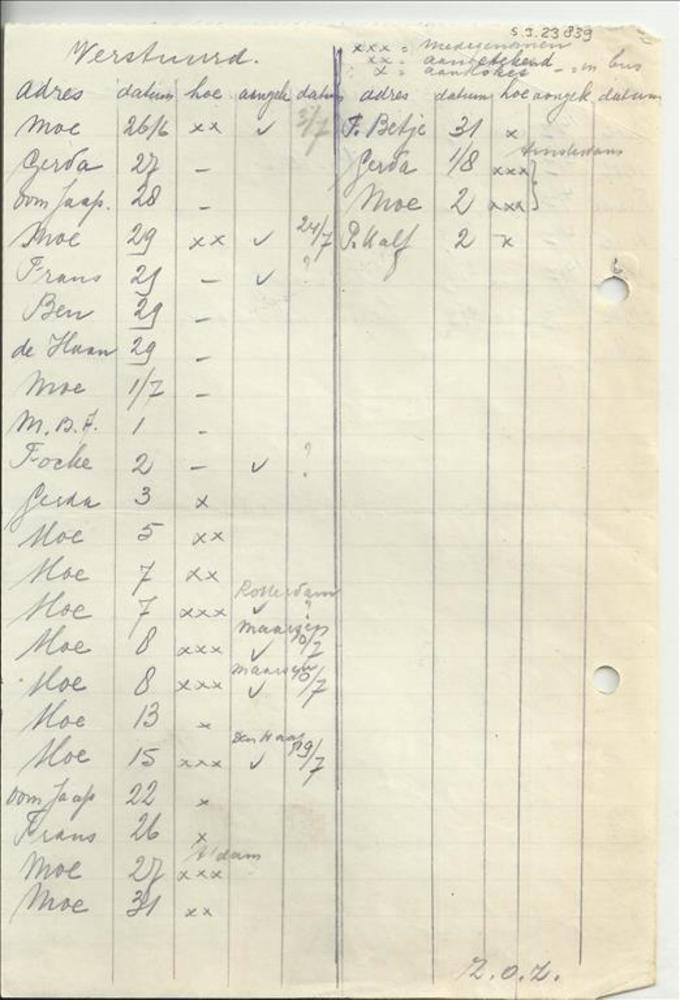 S.J. 23839
Verstuurd.
xxx = medegenomen
xx = aangetekend
x = - = in bus
adres datum hoe aangek datum adres datum hoe aangek datum
Moe 26/6 xx ✓ 3/7 T. Betje 31 x
Gerda 27 - Gerda 1/8 xxx } Amsterdam
oom Jaap. 28 - Moe 2 xxx }
Moe 29 xx ✓ 24/7 P. Kalf 2 x
Frans 29 - ✓ ?
Ben 29 -
de Haan 29 -
Moe 1/7 -
M.B.F. 1 -
Focke 2 - ✓ ?
Gerda 3 x
Moe 5 xx
Moe 7 xx
Moe 7 xxx Rotterdam ✓ ?
Moe 8 xxx Maarsen ✓ 10/7
Moe 8 xxx Maarsen ✓ 10/7
Moe 13 x
Moe 15 xxx Den Haag ✓ 19/7
oom Jaap 22 x
Frans 26 x
Moe 27 xxx A'dam
Moe 31 xx
Z.O.Z.